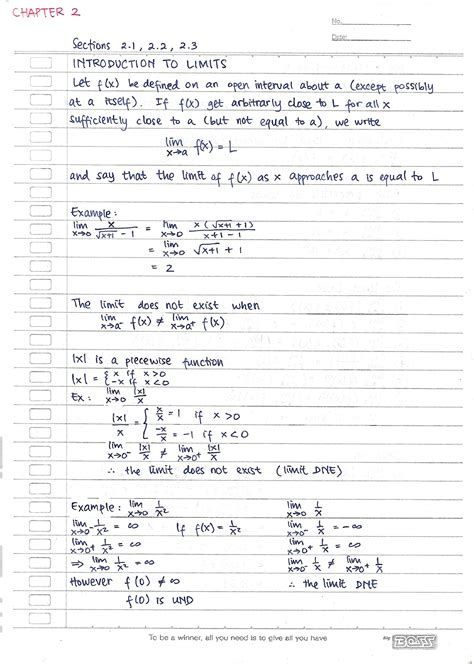 CHAPTER 2
No.
Date
Sections 2.1, 2.2, 2.3
INTRODUCTION TO LIMITS
Let f(x) be defined on an open interval about a (except possibly
at a itself). If f(x) get arbitrarly close to L for all x
sufficiently close to a (but not equal to a), we write
lim x→a f(x) = L
and say that the limit of f(x) as x approaches a is equal to L
Example:
lim x→0 x/(√(x+1) - 1) = lim x→0 x(√(x+1) + 1)/(x+1-1)
= lim x→0 √(x+1) + 1
= 2
The limit does not exist when
lim x→a⁻ f(x) ≠ lim x→a⁺ f(x)
|x| is a piecewise function
|x| = { x if x>0
{ -x if x<0
Ex: lim x→0 |x|/x
|x|/x = { x/x = 1 if x>0
{ -x/x = -1 if x<0
lim x→0⁻ |x|/x ≠ lim x→0⁺ |x|/x
∴ the limit does not exist (limit DNE)
Example: lim x→0 1/x² lim x→0 1/x
lim x→0⁻ 1/x² = ∞ If f(x) = 1/x² lim x→0⁻ 1/x = -∞
lim x→0⁺ 1/x² = ∞ lim x→0⁺ 1/x = ∞
⇒ lim x→0 1/x² = ∞
However f(0) ≠ ∞ ∴ the limit DNE
f(0) is UND
To be a winner, all you need is to give all you have
BOSS